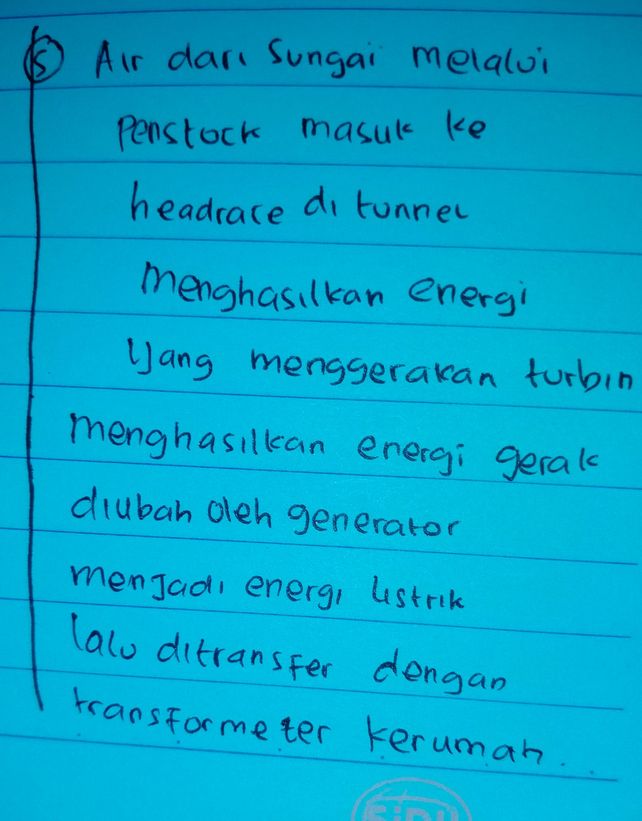 5 Air dari Sungai melalui
Penstock masuk ke
headrace di tunnel
menghasilkan energi
Yang menggerakan turbin
menghasilkan energi gerak
diubah oleh generator
menjadi energi listrik
lalu ditransfer dengan
transformeter kerumah...
SiDU